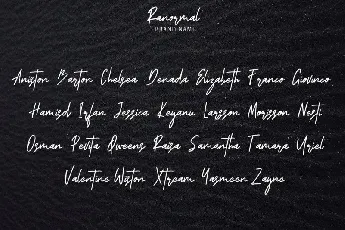 Ranormal
BRAND NAME
Aniston Barton Chelsea Denada Elizabeth Franco Giovinco
Hamizol Irfan Jessica Keyanu Larsson Morisson Nesti
Osman Pevita Queens Raisa Samantha Tamara Uriel
Valentine Weston Xtream Yasmeen Zayne